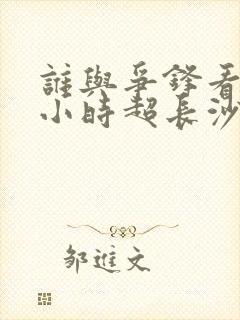 誰與爭鋒看
小時超長沙
鄒進文